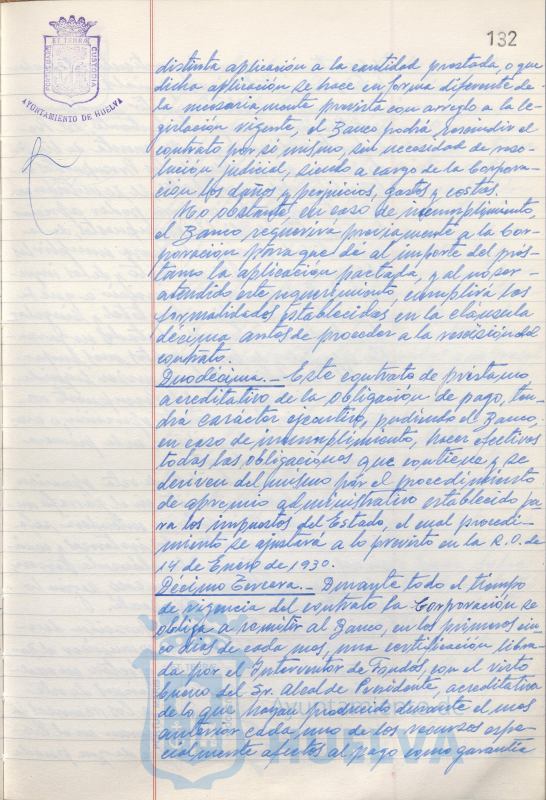 132
PORTUS MARIS
ET TERRÆ
CUSTODIA
AYUNTAMIENTO DE HUELVA
distinta aplicación a la cantidad prestada, o que
dicha aplicación se hace en forma diferente de
la necesariamente prevista con arreglo a la le-
gislación vigente, el Banco podrá rescindir el
contrato por sí mismo, sin necesidad de reso-
lución judicial, siendo a cargo de la Corpora-
ción los daños y perjuicios, gastos y costas.
No obstante, en caso de incumplimiento,
el Banco requerirá previamente a la Cor-
poración para que dé al importe del prés-
tamo la aplicación pactada, y al no ser
atendido este requerimiento, cumplirá las
formalidades establecidas en la cláusula
décima antes de proceder a la rescisión del
contrato.
Duodécima.- Este contrato de préstamo
acreditativo de la obligación de pago, ten-
drá carácter ejecutivo, pudiendo el Banco,
en caso de incumplimiento, hacer efectivas
todas las obligaciones que contiene y se
deriven del mismo por el procedimiento
de apremio administrativo establecido pa-
ra los impuestos del Estado, el cual procedi-
miento se ajustará a lo previsto en la R.O. de
14 de Enero de 1930.
Décimo Tercera.- Durante todo el tiempo
de vigencia del contrato la Corporación se
obliga a remitir al Banco, en los primeros cin-
co días de cada mes, una certificación libra-
da por el Interventor de Fondos, con el visto
bueno del Sr. Alcalde Presidente, acreditativa
de lo que hayan producido durante el mes
anterior cada uno de los recursos espe-
cialmente afectos al pago como garantía